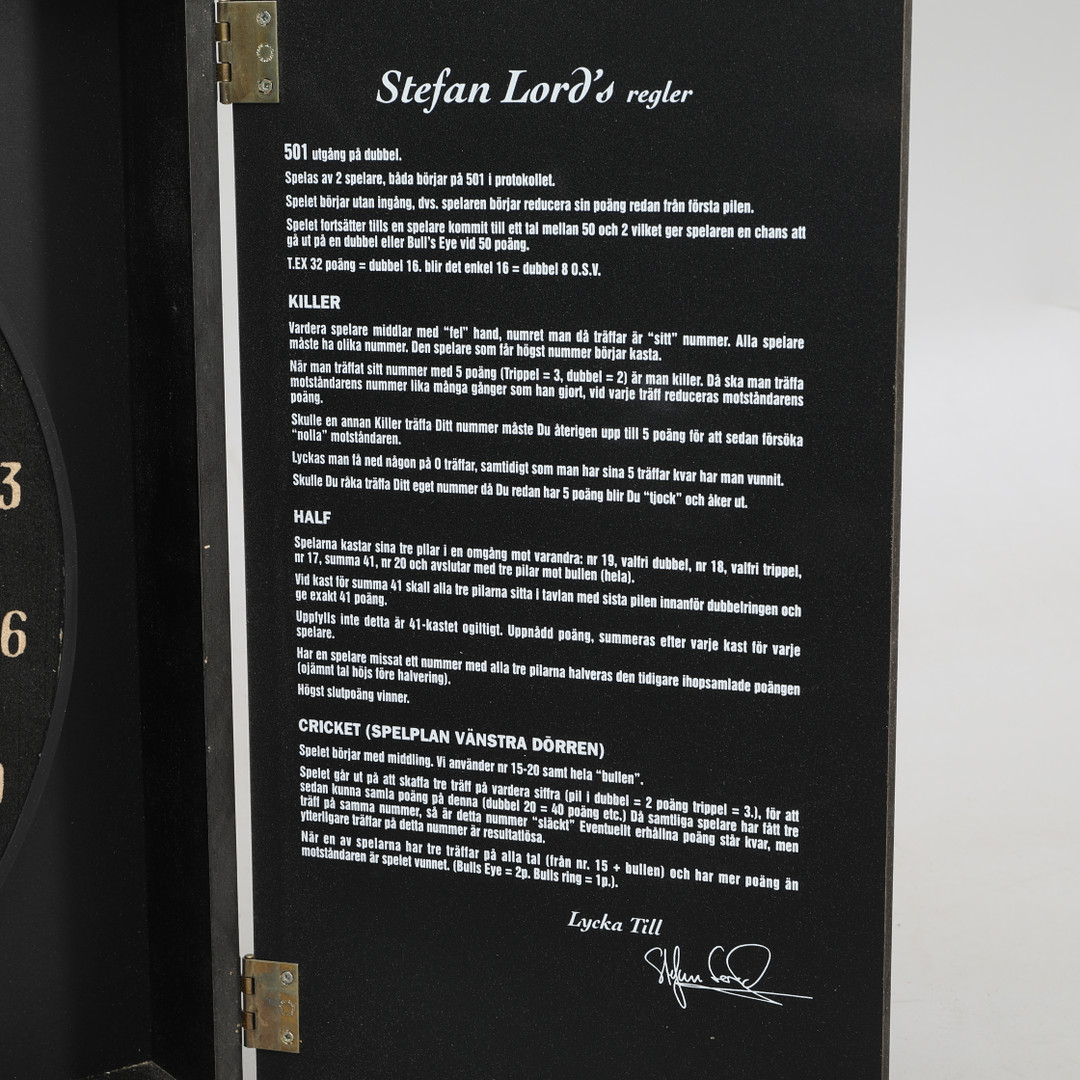 Stefan Lord's regler
501 utgång på dubbel.
Spelas av 2 spelare, båda börjar på 501 i protokollet.
Spelet börjar utan ingång, dvs. spelaren börjar reducera sin poäng redan från första pilen.
Spelet fortsätter tills en spelare kommit till ett tal mellan 50 och 2 vilket ger spelaren en chans att
gå ut på en dubbel eller Bull's Eye vid 50 poäng.
T.EX 32 poäng = dubbel 16. blir det enkel 16 = dubbel 8 O.S.V.
KILLER
Vardera spelare middlar med "fel" hand, numret man då träffar är "sitt" nummer. Alla spelare
måste ha olika nummer. Den spelare som får högst nummer börjar kasta.
När man träffat sitt nummer med 5 poäng (Trippel = 3, dubbel = 2) är man killer. Då ska man träffa
motståndarens nummer lika många gånger som han gjort, vid varje träff reduceras motståndarens
poäng.
Skulle en annan Killer träffa Ditt nummer måste Du återigen upp till 5 poäng för att sedan försöka
"nolla" motståndaren.
Lyckas man få ned någon på 0 träffar, samtidigt som man har sina 5 träffar kvar har man vunnit.
Skulle Du råka träffa Ditt eget nummer då Du redan har 5 poäng blir Du "tjock" och åker ut.
HALF
Spelarna kastar sina tre pilar i en omgång mot varandra: nr 19, valfri dubbel, nr 18, valfri trippel,
nr 17, summa 41, nr 20 och avslutar med tre pilar mot bullen (hela).
Vid kast för summa 41 skall alla tre pilarna sitta i tavlan med sista pilen innanför dubbelringen och
ge exakt 41 poäng.
Uppfylls inte detta är 41-kastet ogiltigt. Uppnådd poäng, summeras efter varje kast för varje
spelare.
Har en spelare missat ett nummer med alla tre pilarna halveras den tidigare ihopsamlade poängen
(ojämnt tal höjs före halvering).
Högst slutpoäng vinner.
CRICKET (SPELPLAN VÄNSTRA DÖRREN)
Spelet börjar med middling. Vi använder nr 15-20 samt hela "bullen".
Spelet går ut på att skaffa tre träff på vardera siffra (pil i dubbel = 2 poäng trippel = 3.), för att
sedan kunna samla poäng på denna (dubbel 20 = 40 poäng etc.) Då samtliga spelare har fått tre
träff på samma nummer, så är detta nummer "släckt" Eventuellt erhållna poäng står kvar, men
ytterligare träffar på detta nummer är resultatlösa.
När en av spelarna har tre träffar på alla tal (från nr. 15 + bullen) och har mer poäng än
motståndaren är spelet vunnet. (Bulls Eye = 2p. Bulls ring = 1p.).
Lycka Till
Stefan Lord
3
6